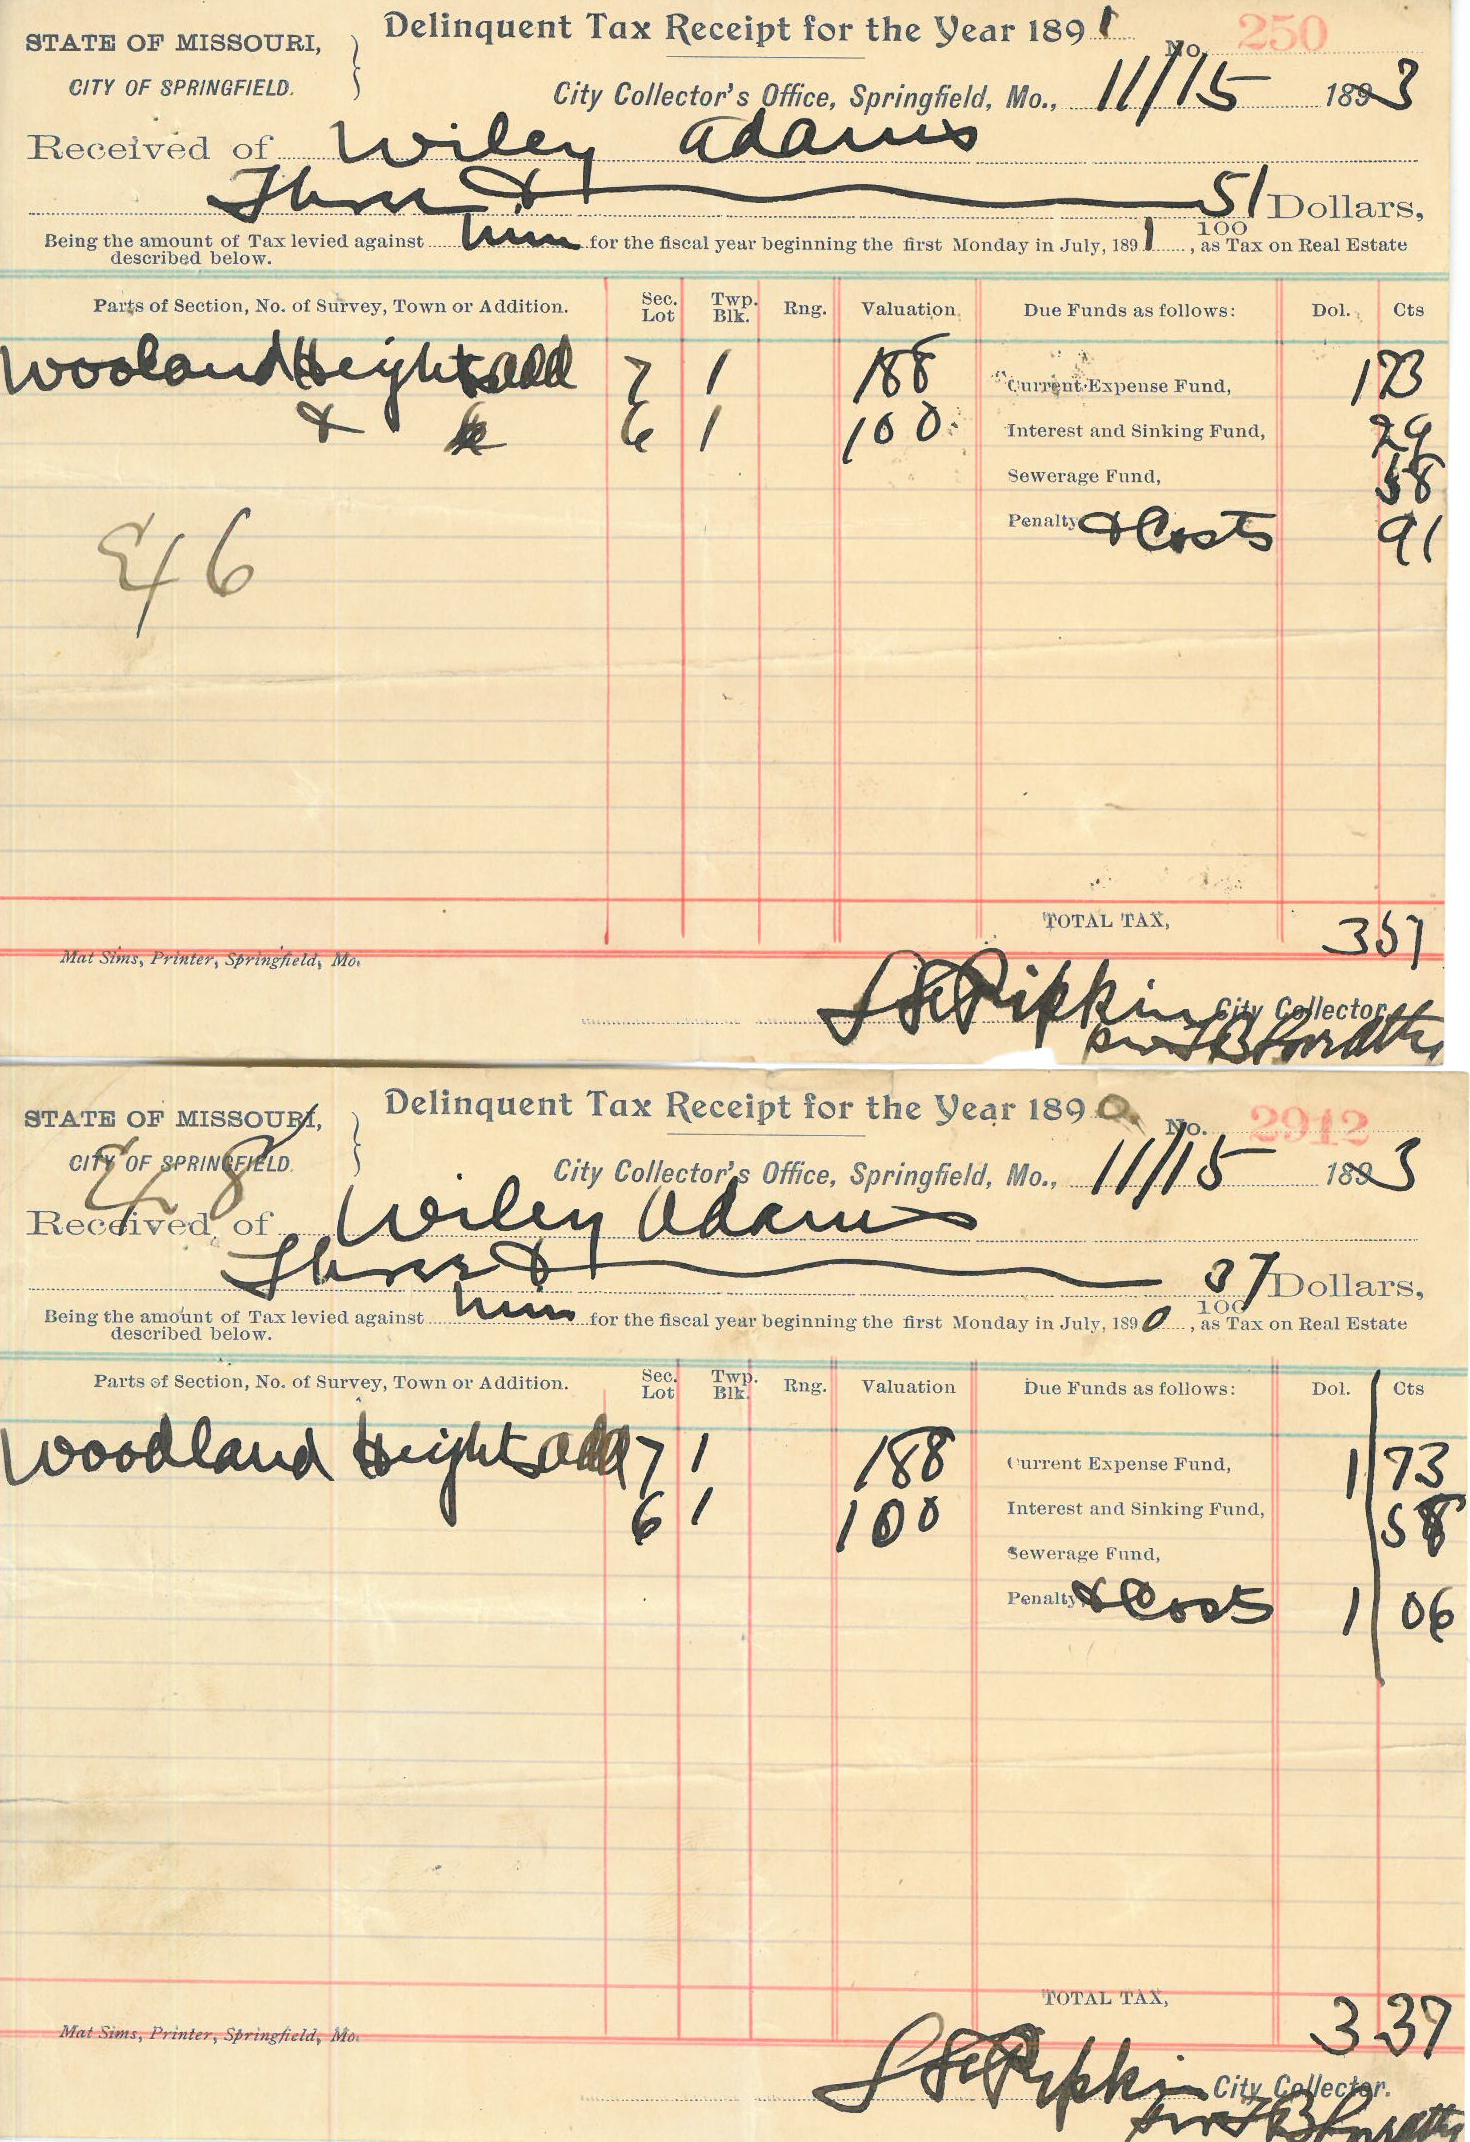 Delinquent Tax Receipt for the Year 1891
STATE OF MISSOURI,
No. 250
CITY OF SPRINGFIELD.
City Collector's Office, Springfield, Mo., 11/15 1893
Received of Wiley Adams
Three & 51/100 Dollars,
Being the amount of Tax levied against him for the fiscal year beginning the first Monday in July, 1891, as Tax on Real Estate
described below.
Parts of Section, No. of Survey, Town or Addition. Sec. Lot Twp. Blk. Rng. Valuation Due Funds as follows: Dol. Cts
Wooland Heights add 7 1 188 Current Expense Fund, 1 73
& 6 1 100 Interest and Sinking Fund, 29
Sewerage Fund, 58
Penalty & Costs 91
E/6
TOTAL TAX, 351
Mat Sims, Printer, Springfield, Mo.
Pipkin City Collector.
Delinquent Tax Receipt for the Year 1890.
STATE OF MISSOURI,
No. 2912
CITY OF SPRINGFIELD.
E/8
City Collector's Office, Springfield, Mo., 11/15 1893
Received of Wiley Adams
Three & 37/100 Dollars,
Being the amount of Tax levied against him for the fiscal year beginning the first Monday in July, 1890, as Tax on Real Estate
described below.
Parts of Section, No. of Survey, Town or Addition. Sec. Lot Twp. Blk. Rng. Valuation Due Funds as follows: Dol. Cts
Woodland Heights add 7 1 188 Current Expense Fund, 1 73
6 1 100 Interest and Sinking Fund, 58
Sewerage Fund,
Penalty, & Costs 1 06
TOTAL TAX, 3 37
Mat Sims, Printer, Springfield, Mo.
Pipkin City Collector.